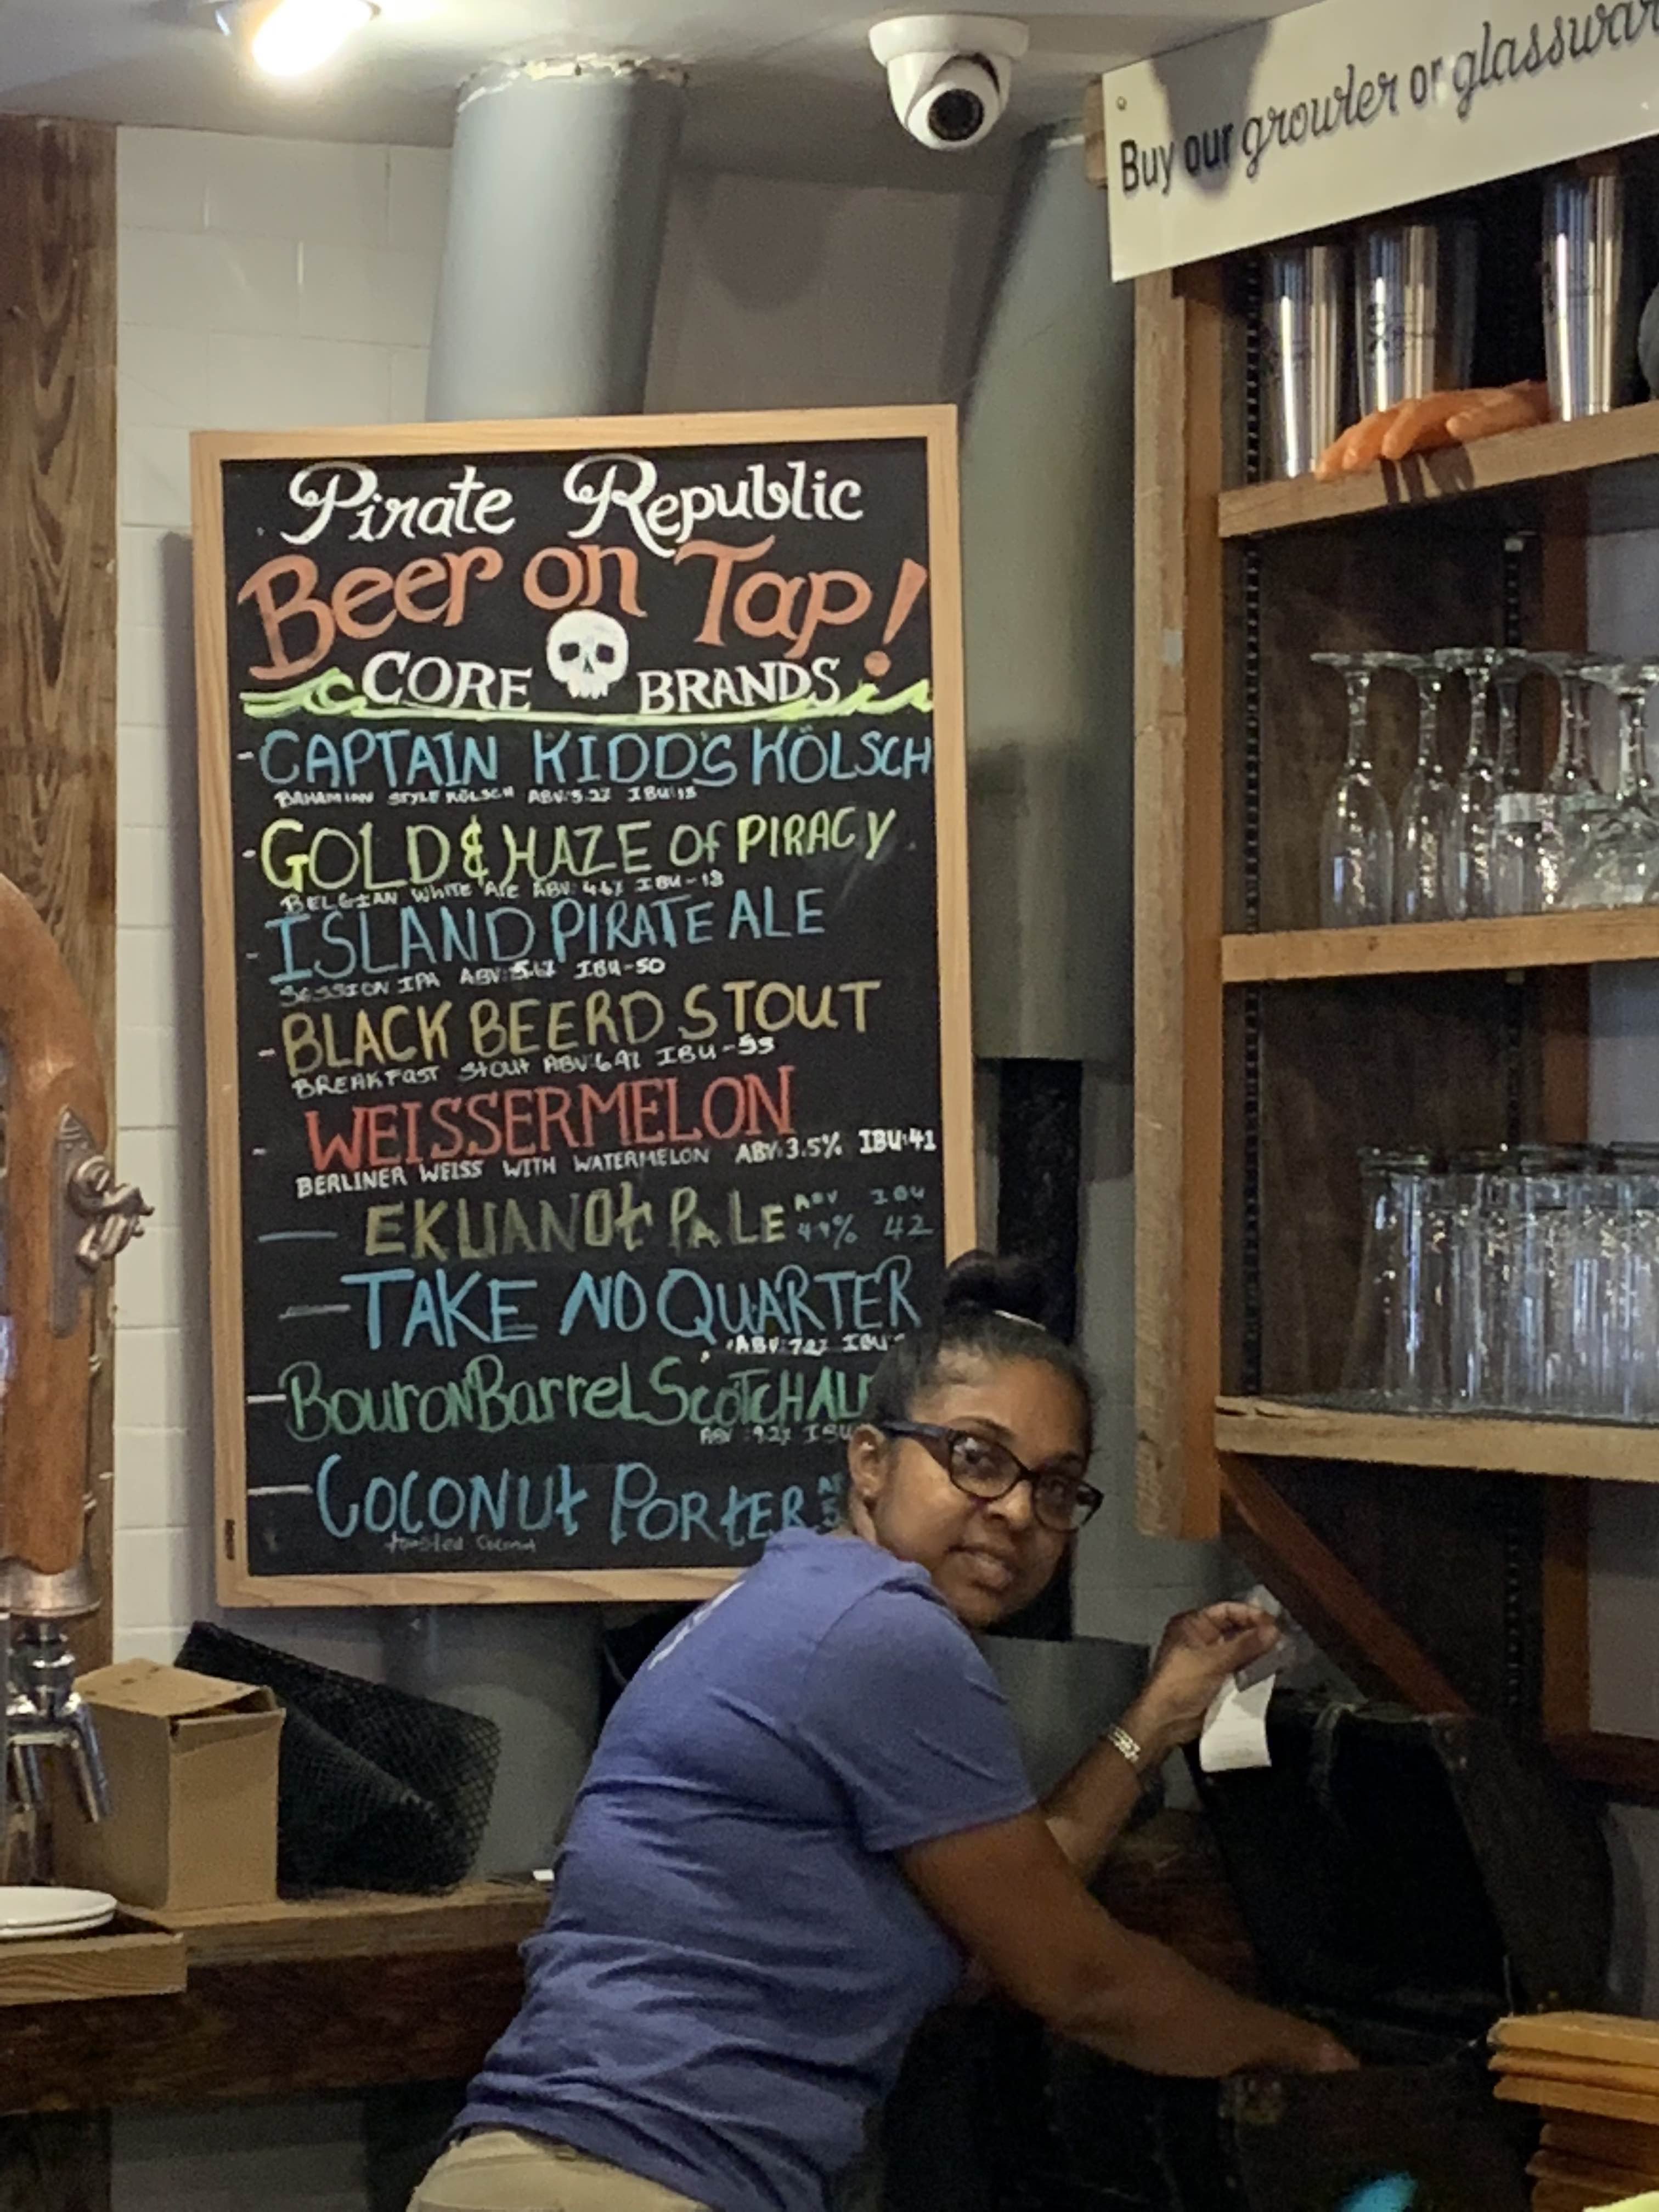 Buy our growler or glasswar
Pirate Republic
Beer on Tap!
CORE BRANDS
- CAPTAIN KIDD'S KÖLSCH
BAHAMIAN STYLE KÖLSCH ABV: 5.2% IBU: 18
- GOLD & HAZE OF PIRACY
BELGIAN WHITE ALE ABV: 4.6% IBU - 18
- ISLAND PIRATE ALE
SESSION IPA ABV: 5.6% IBU - 50
- BLACK BEERD STOUT
BREAKFAST STOUT ABV: 6.9% IBU -
- WEISSERMELON
BERLINER WEISS WITH WATERMELON ABV: 3.5% IBU: 41
— EKUANOt PALE ABV 4.9% IBU 42
— TAKE NO QUARTER
ABV: 7.2% IBU
— BouronBarrel SCOTCH ALE
ABV: 9.2% IBU
— COCONUt PORtER
toasted